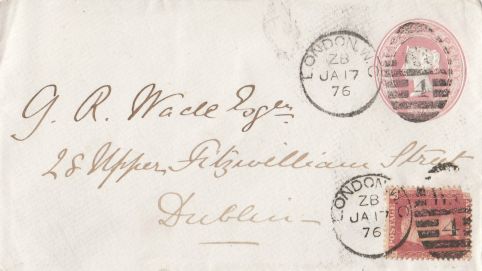 LONDON.W.C
ZB
JA 17
76
4
G. R. Wade Esqre
28 Upper Fitzwilliam Street
Dublin
LONDON.W.C
ZB
JA 17
76
4